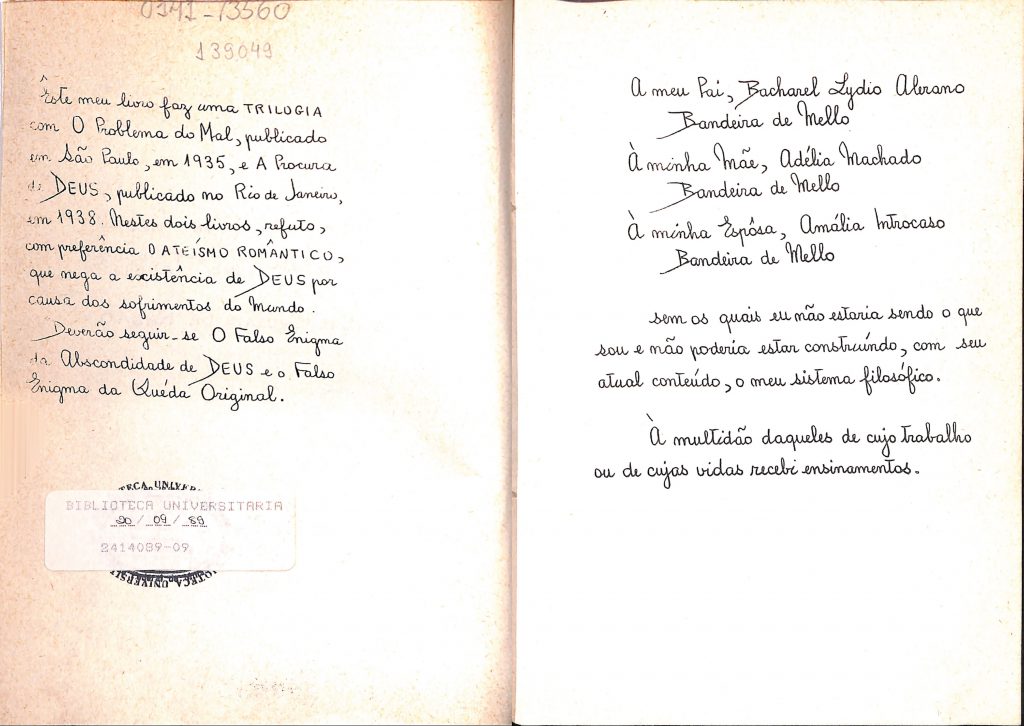 0141-13560
139049
Êste meu livro faz uma TRILOGIA
com O Problema do Mal, publicado
em São Paulo, em 1935, e A Procura
de DEUS, publicado no Rio de Janeiro,
em 1938. Nestes dois livros, refuto,
com preferência O ATEÍSMO ROMÂNTICO,
que nega a existência de DEUS por
causa dos sofrimentos do Mundo.
Deverão seguir-se O Falso Enigma
da Abscondidade de DEUS e o Falso
Enigma da Quéda Original.
BIBLIOTECA UNIVERSITARIA
20 / 09 / 89
2414089-09
A meu Pai, Bacharel Lydio Alerano
Bandeira de Mello
À minha Mãe, Adélia Machado
Bandeira de Mello
À minha Espôsa, Amália Introcaso
Bandeira de Mello
sem os quais eu não estaria sendo o que
sou e não poderia estar construindo, com seu
atual conteúdo, o meu sistema filosófico.
À multidão daqueles de cujo trabalho
ou de cujas vidas recebi ensinamentos.